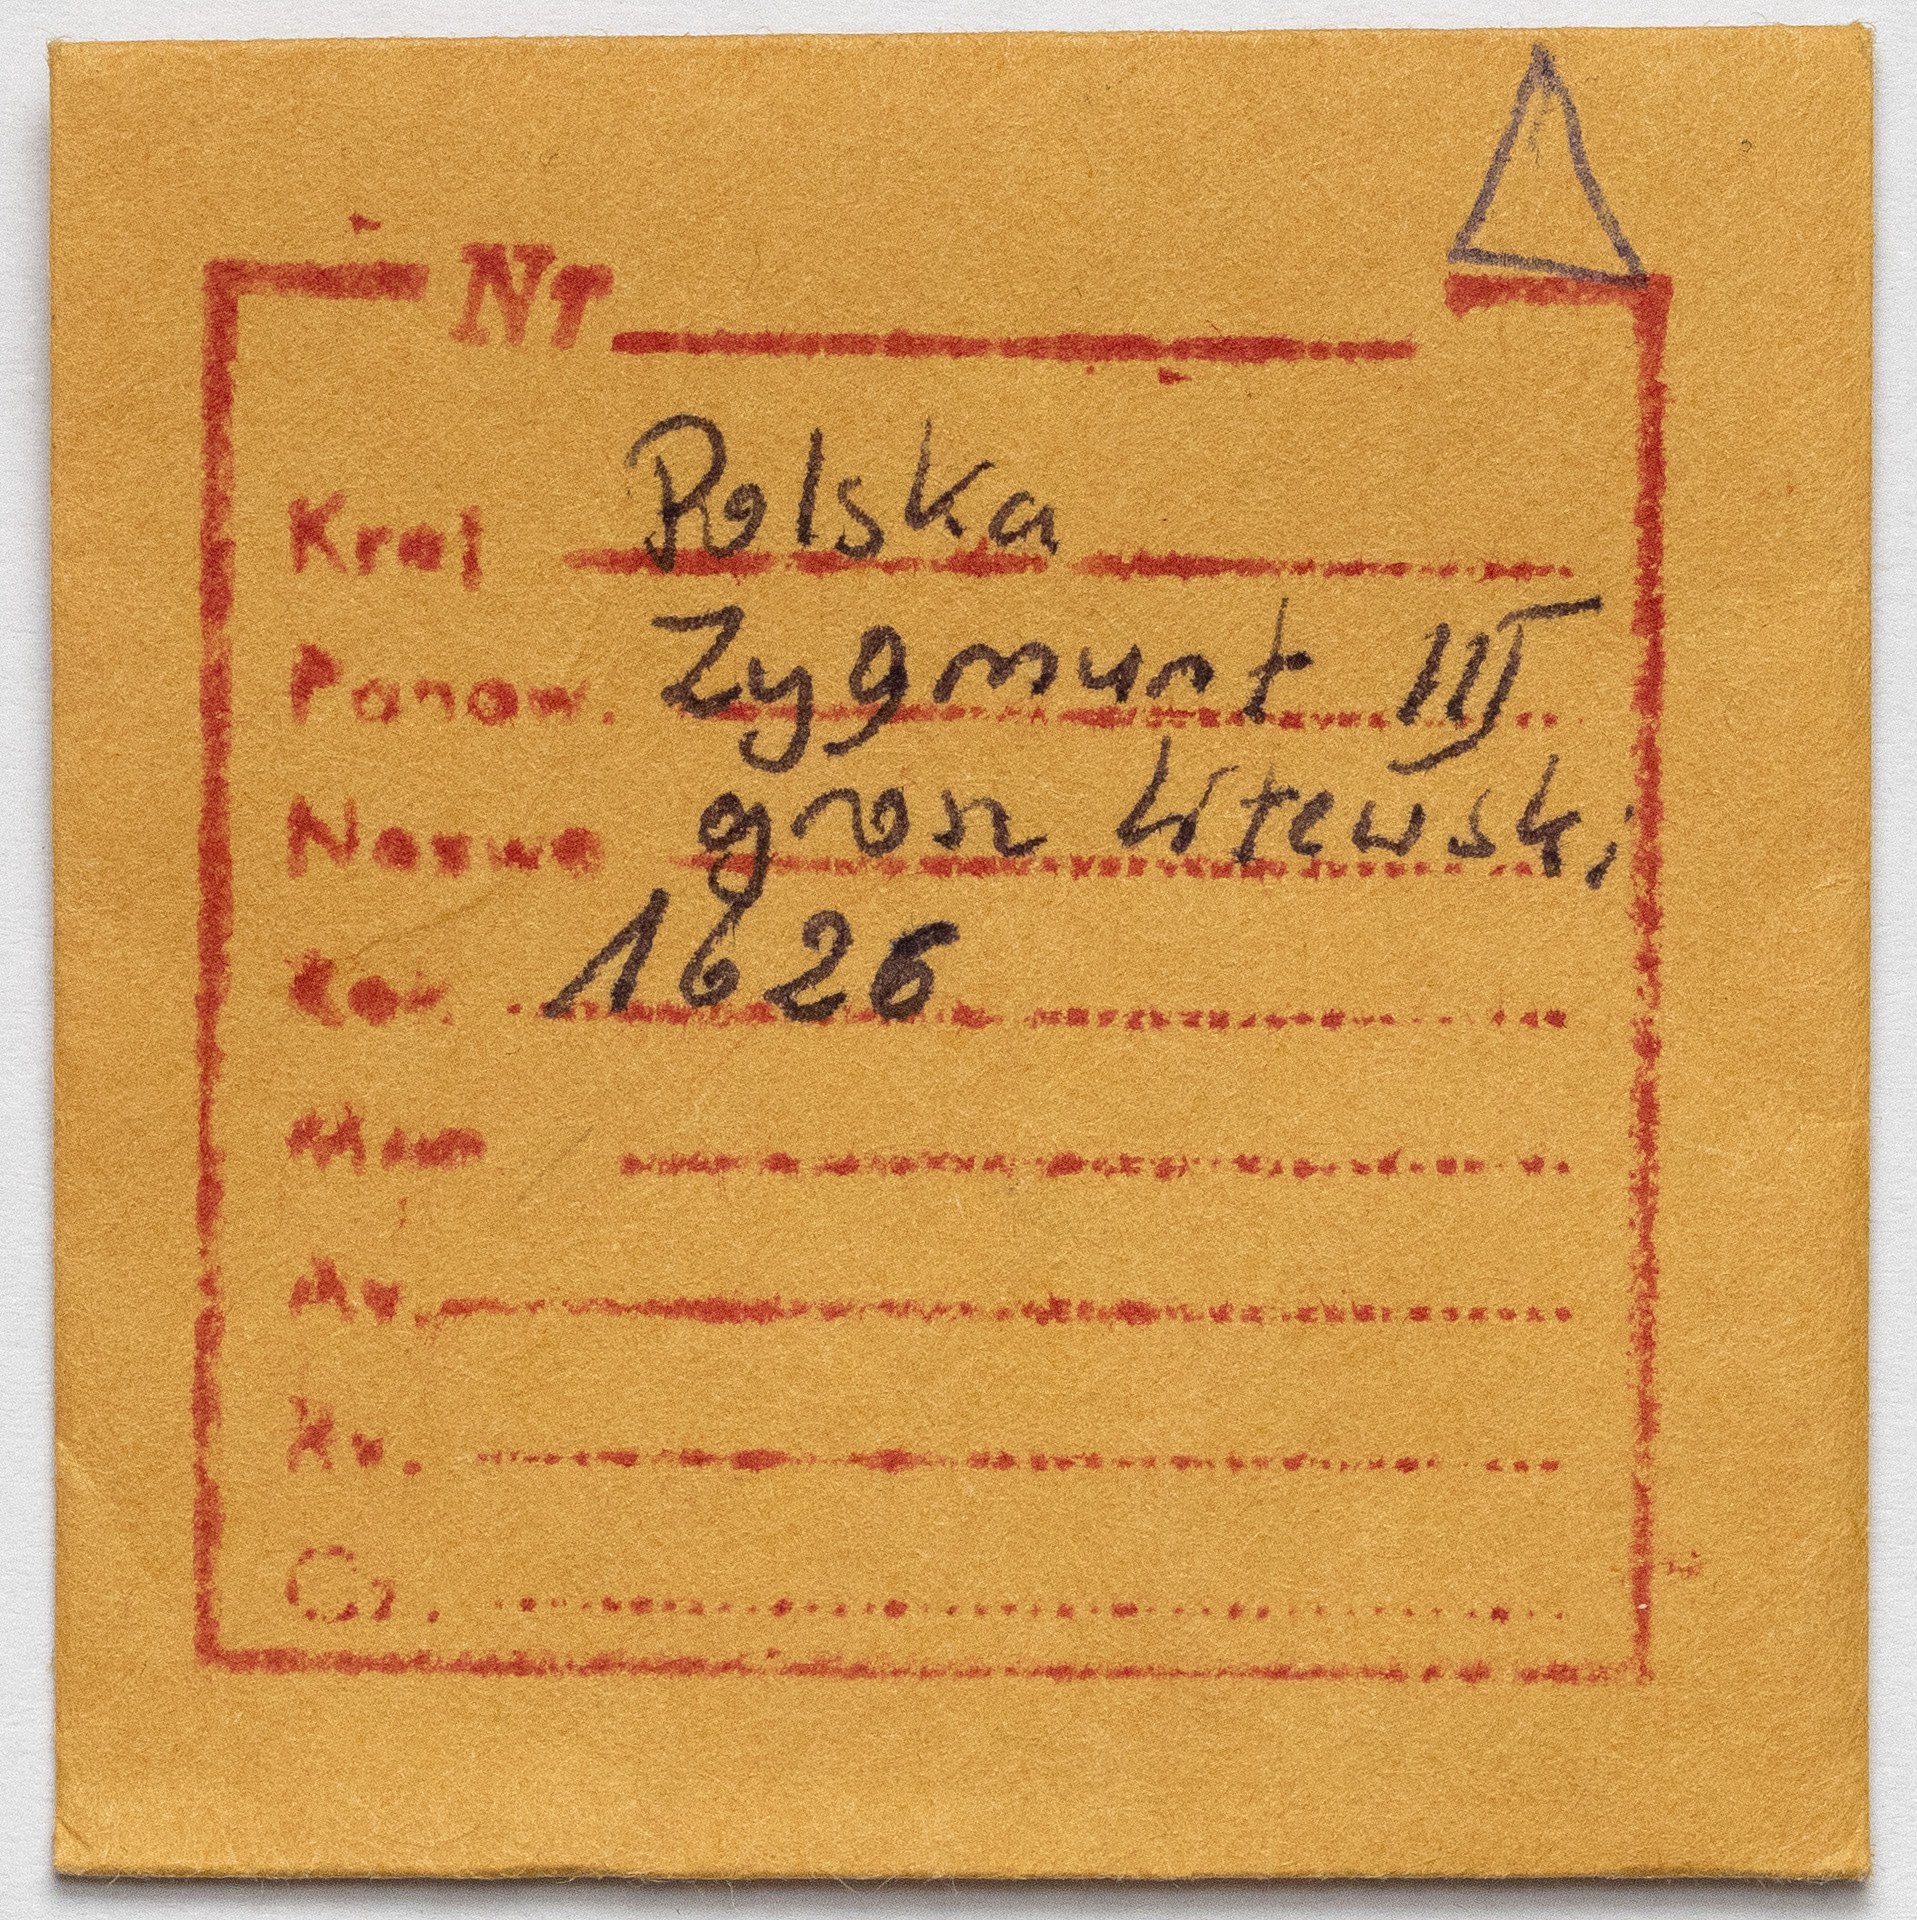 Nr
Kraj Polska
Panow. Zygmunt III
Nazwa grosz litewski
Rok 1626
Mian
Av.
Rv.